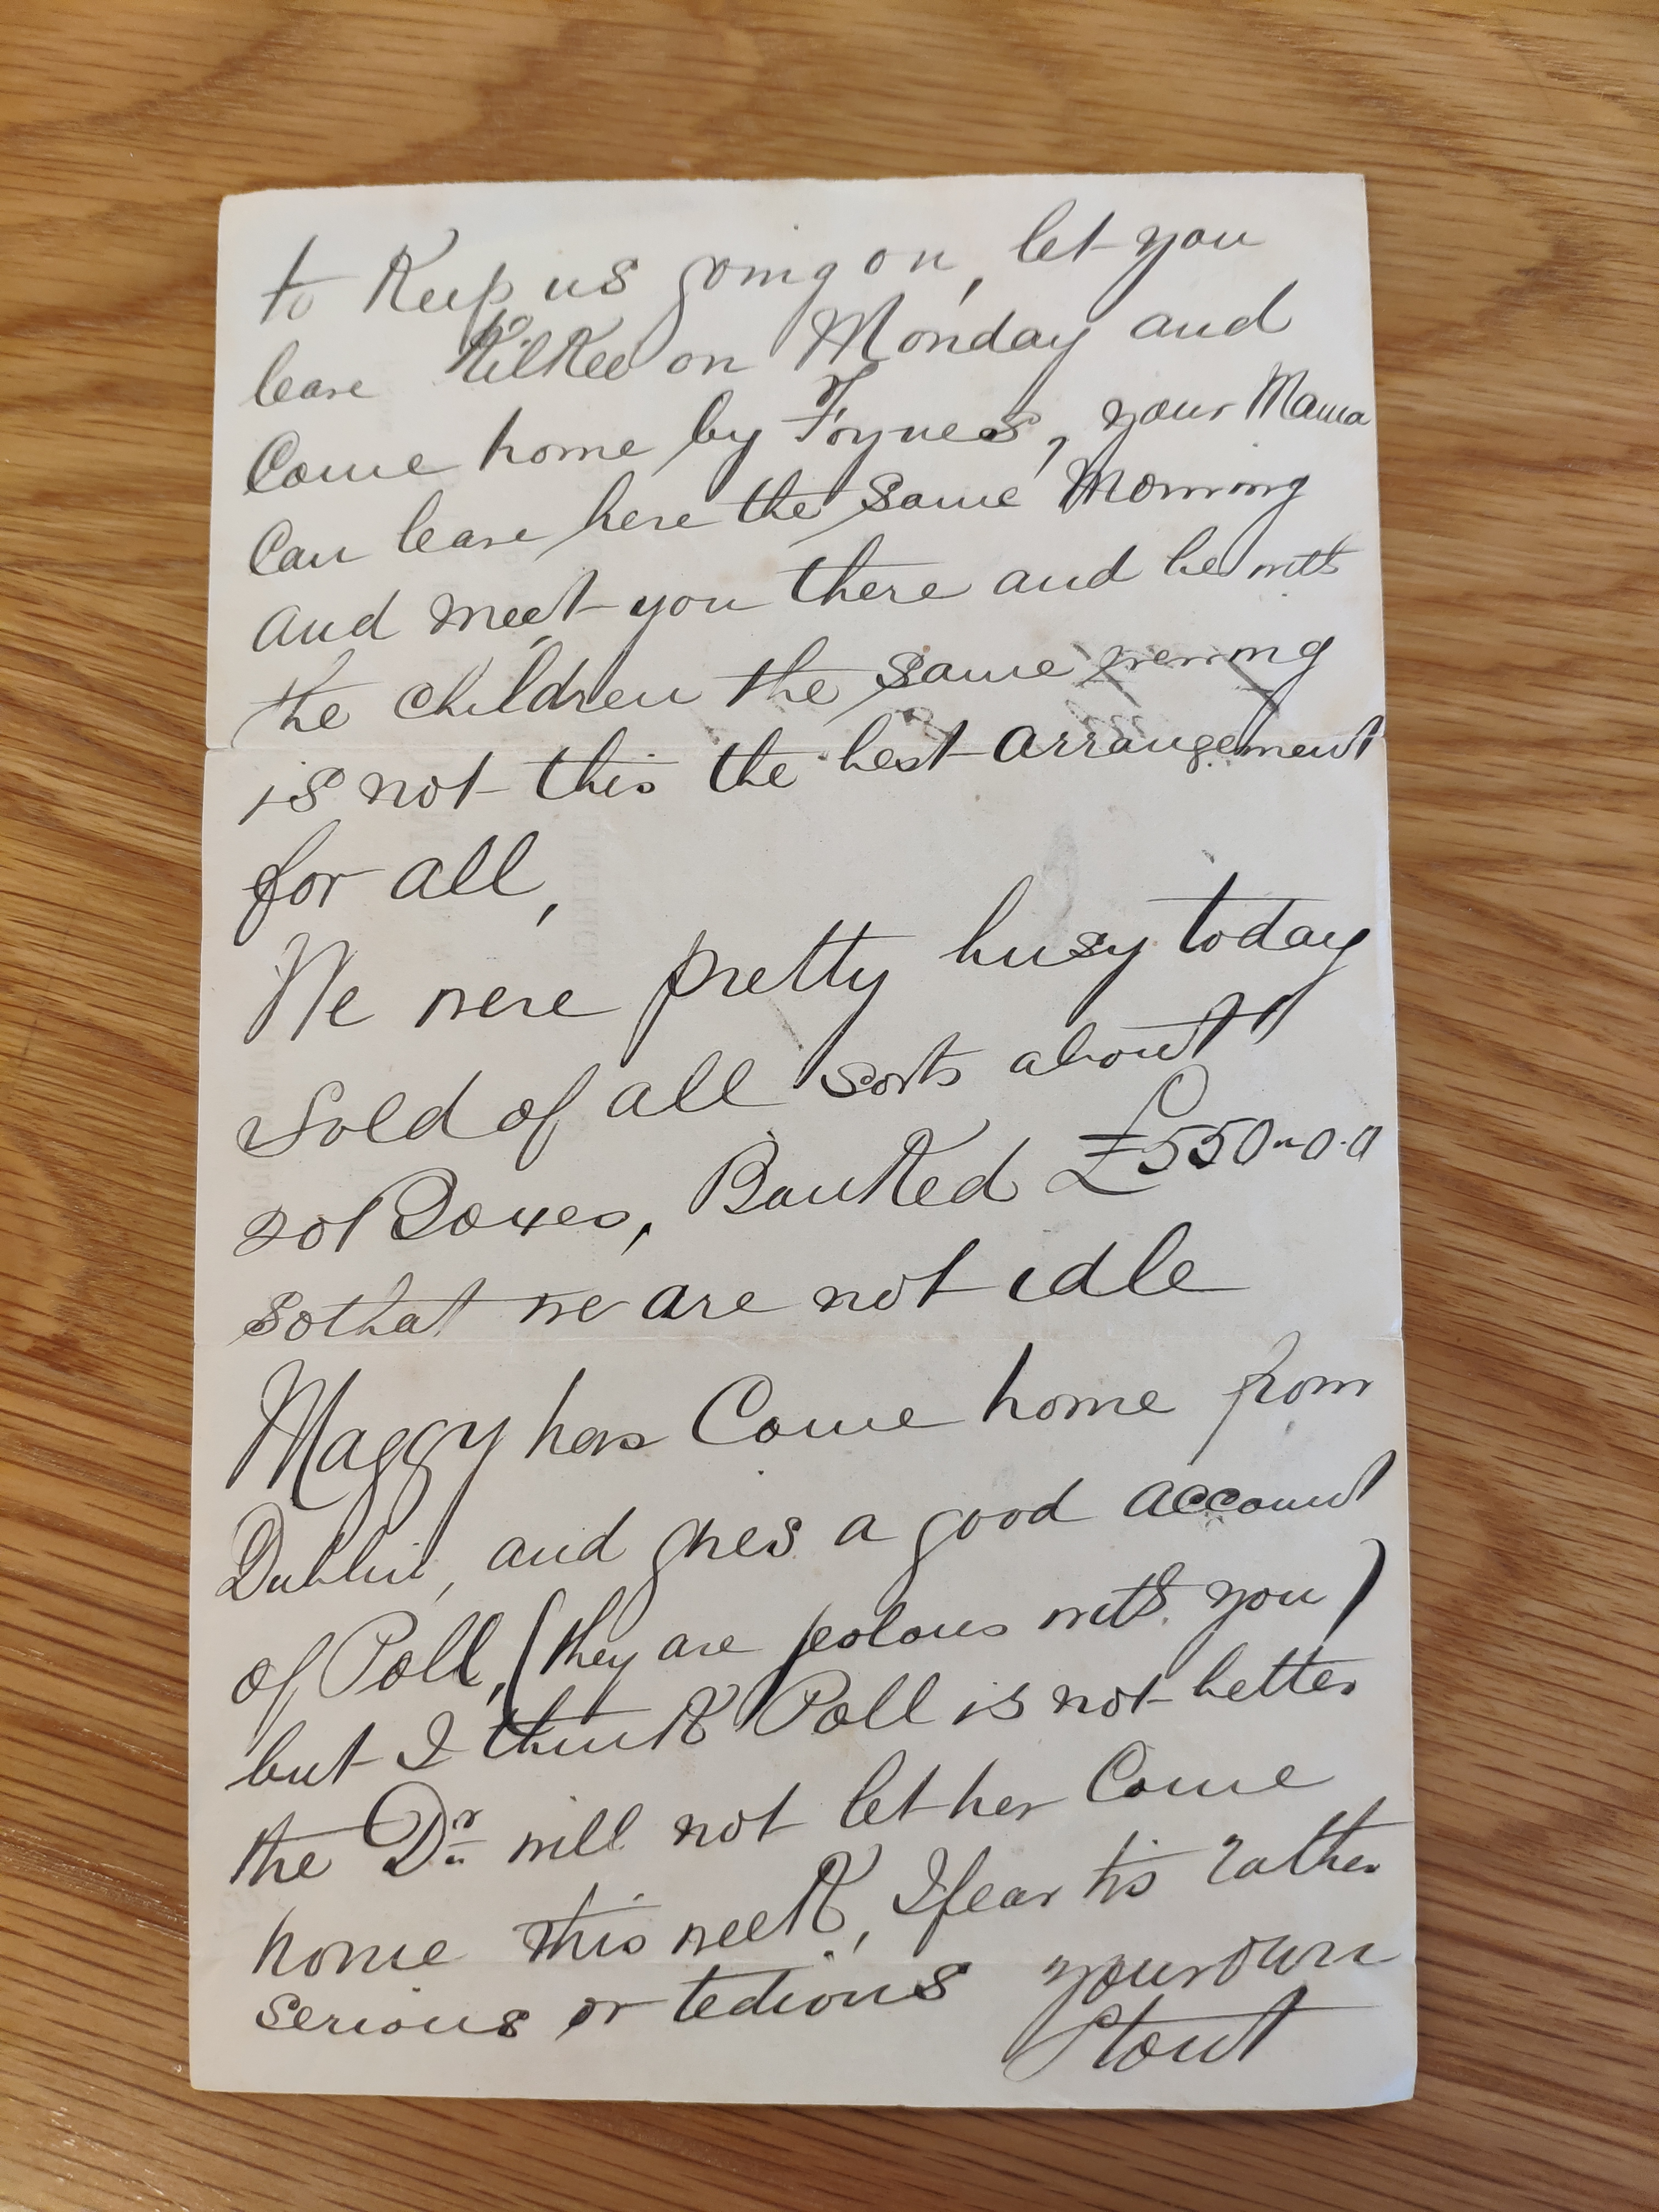 to Keep us going on, let you
leave Kilkee on Monday and
Come home by Foynes, your Mama
Can leave here the same Morning
and meet you there and be with
the children the same evening
is not this the best arrangement
for all,
We were pretty busy today
Sold of all sorts about
Boxes, Banked £550-0-0
so that we are not idle
Maggy has Come home from
Dublin, and gives a good account
of Poll, (they are jealous with you)
but I think Poll is not better
the Dr will not let her Come
home this week, I fear tis rather
serious or tedious your own
Stout